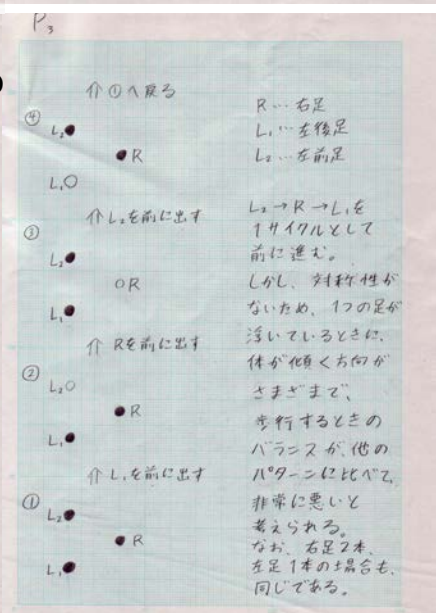 P3
⇧①へ戻る
④
L2●
●R
L1○
⇧L2を前に出す
③
L2●
○R
L1●
⇧Rを前に出す
②
L2○
●R
L1●
⇧L1を前に出す
①
L2●
●R
L1●
R…右足
L1…左後足
L2…左前足
L2→R→L1を
1サイクルとして
前に進む。
しかし、対称性が
ないため、1つの足が
浮いているときに、
体が傾く方向が
さまざまで、
歩行するときの
バランスが、他の
パターンに比べて、
非常に悪いと
考えられる。
なお、右足2本、
左足1本の場合も、
同じである。